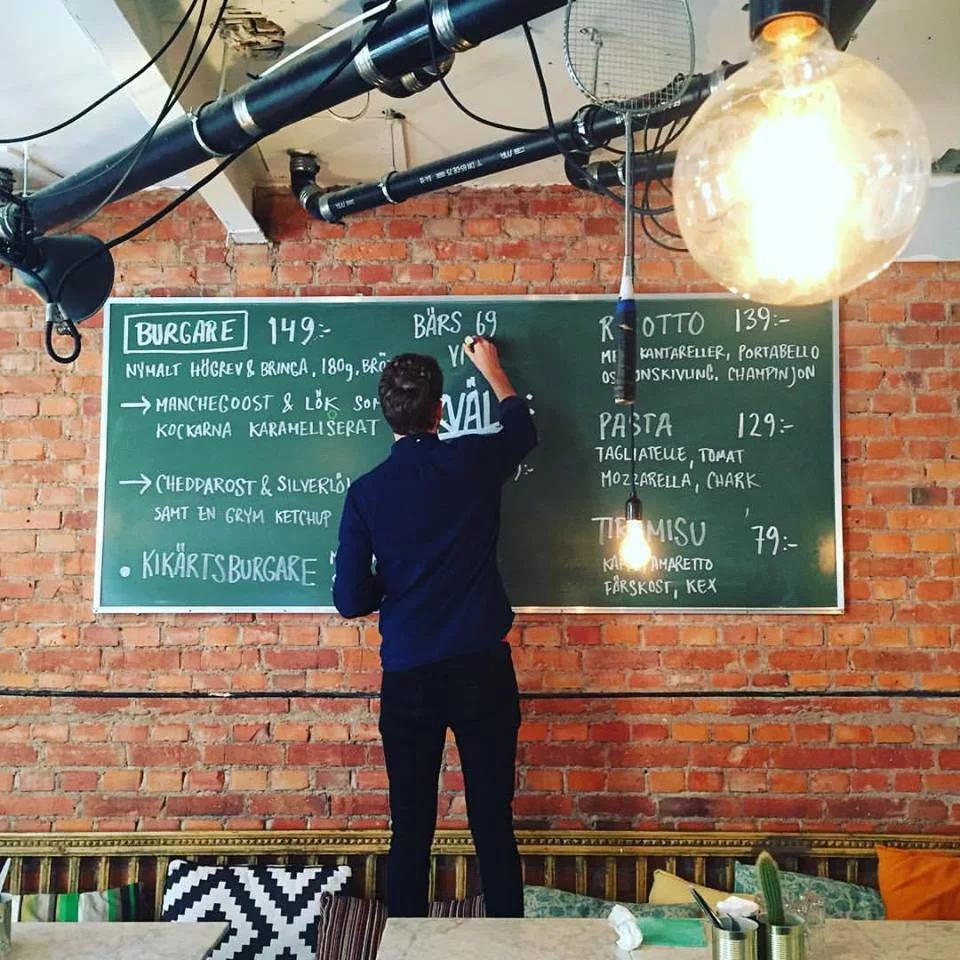 BURGARE 149:-
NYMALT HÖGREV & BRINGA, 180g, BRÖ
→ MANCHEGOOST & LÖK SOM
KOCKARNA KARAMELISERAT
→ CHEDDAROST & SILVERLÖ
SAMT EN GRYM KETCHUP
• KIKÄRTSBURGARE
BÄRS 69
VÄL
139:-
KANTARELLER, PORTABELLO
CHAMPINJON
PASTA 129:-
TAGLIATELLE, TOMAT
MOZZARELLA, CHARK
TIRAMISU 79:-
AMARETTO
FÄRSKOST, KEX